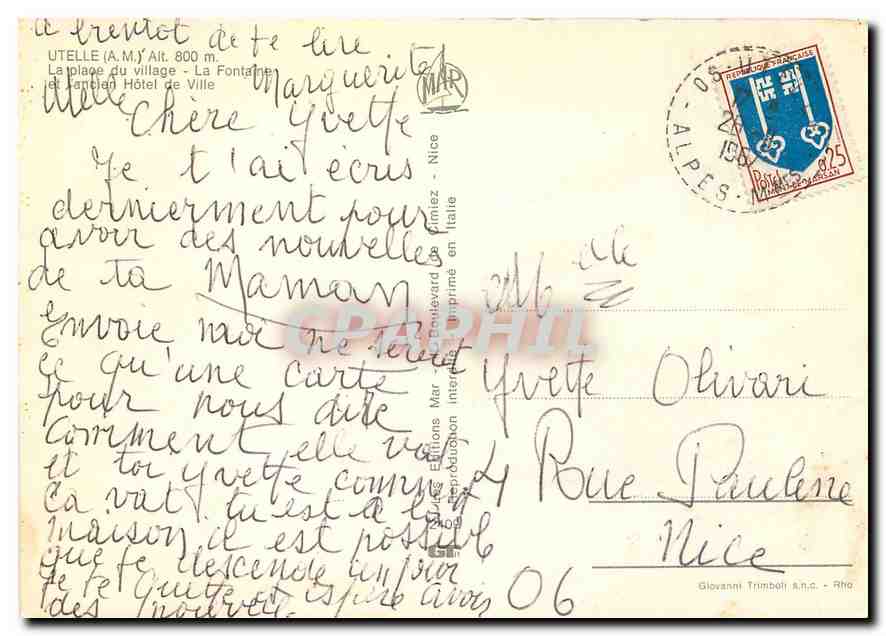 à bientot de te lire
Marguerite
UTELLE (A.M.) Alt. 800 m.
La place du village - La Fontaine
et l'ancien Hôtel de Ville
Melle
Chère Yvette
Je t'ai écris
dernierment pour
avoir des nouvelles
de ta Maman
Envoie moi ne serait
ce qu'une carte
pour nous dire
comment elle vat
et toi Yvette comment
ca vat tu est a la
maison il est possible
que je descende un jour
je te quitte et espère avoir
des nouvelle
MAR
Les Editions Mar - Boulevard de Cimiez - Nice
Reproduction interdite Imprimé en Italie
2409
REPUBLIQUE FRANÇAISE
Postes 0,25
MONT-DE-MARSAN
ALPES-MMES
196
CPAPHIL
Melle
Yvette Olivari
4 Rue Pauline
Nice
06
Giovanni Trimboli s.n.c. - Rho